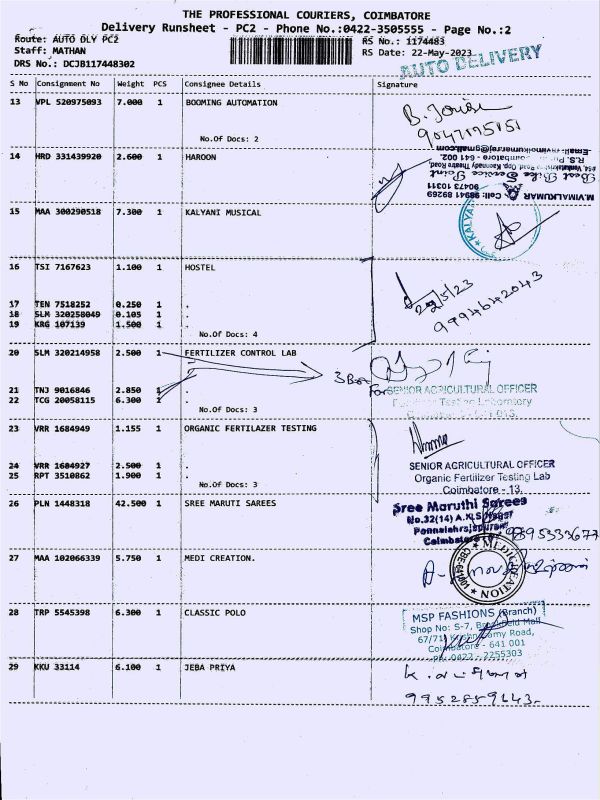 THE PROFESSIONAL COURIERS, COIMBATORE
Delivery Runsheet - PC2 - Phone No.:0422-3505555 - Page No.:2
Route: AUTO DLY PC2 RS No.: 1174483
Staff: MATHAN RS Date: 22-May-2023
DRS No.: DCJB117448302 AUTO DELIVERY
S No Consignment No Weight PCS Consignee Details Signature
13 VPL 520975093 7.000 1 BOOMING AUTOMATION
No.Of Docs: 2
14 HRD 331439920 2.600 1 HAROON
M.VIMALKUMAR Cell: 98941 89269
90473 10311
Best Bike Service Point
15 MAA 300290518 7.300 1 KALYANI MUSICAL
16 TSI 7167623 1.100 1 HOSTEL
22/5/23
9994642043
17 TEN 7518252 0.250 1 .
18 SLM 320258049 0.105 1 .
19 KRG 107139 1.500 1 .
No.Of Docs: 4
20 SLM 320214958 2.500 1 FERTILIZER CONTROL LAB
3 Box
For SENIOR AGRICULTURAL OFFICER
21 TNJ 9016846 2.850 1 .
22 TCG 20058115 6.300 1 .
No.Of Docs: 3
23 VRR 1684949 1.155 1 ORGANIC FERTILAZER TESTING
24 VRR 1684927 2.500 1 .
25 RPT 3510862 1.900 1 .
No.Of Docs: 3
SENIOR AGRICULTURAL OFFICER
Organic Fertilizer Testing Lab
Coimbatore - 13.
26 PLN 1448318 42.500 1 SREE MARUTI SAREES
Sree Maruthi Sarees
No.32(14)
Coimbatore
27 MAA 102066339 5.750 1 MEDI CREATION.
MEDI CREATION
28 TRP 5545398 6.300 1 CLASSIC POLO
MSP FASHIONS (Branch)
Shop No: S-7, Brookefield Mall
67/71
Coimbatore - 641 001
PH 0422 - 2255303
29 KKU 33114 6.100 1 JEBA PRIYA